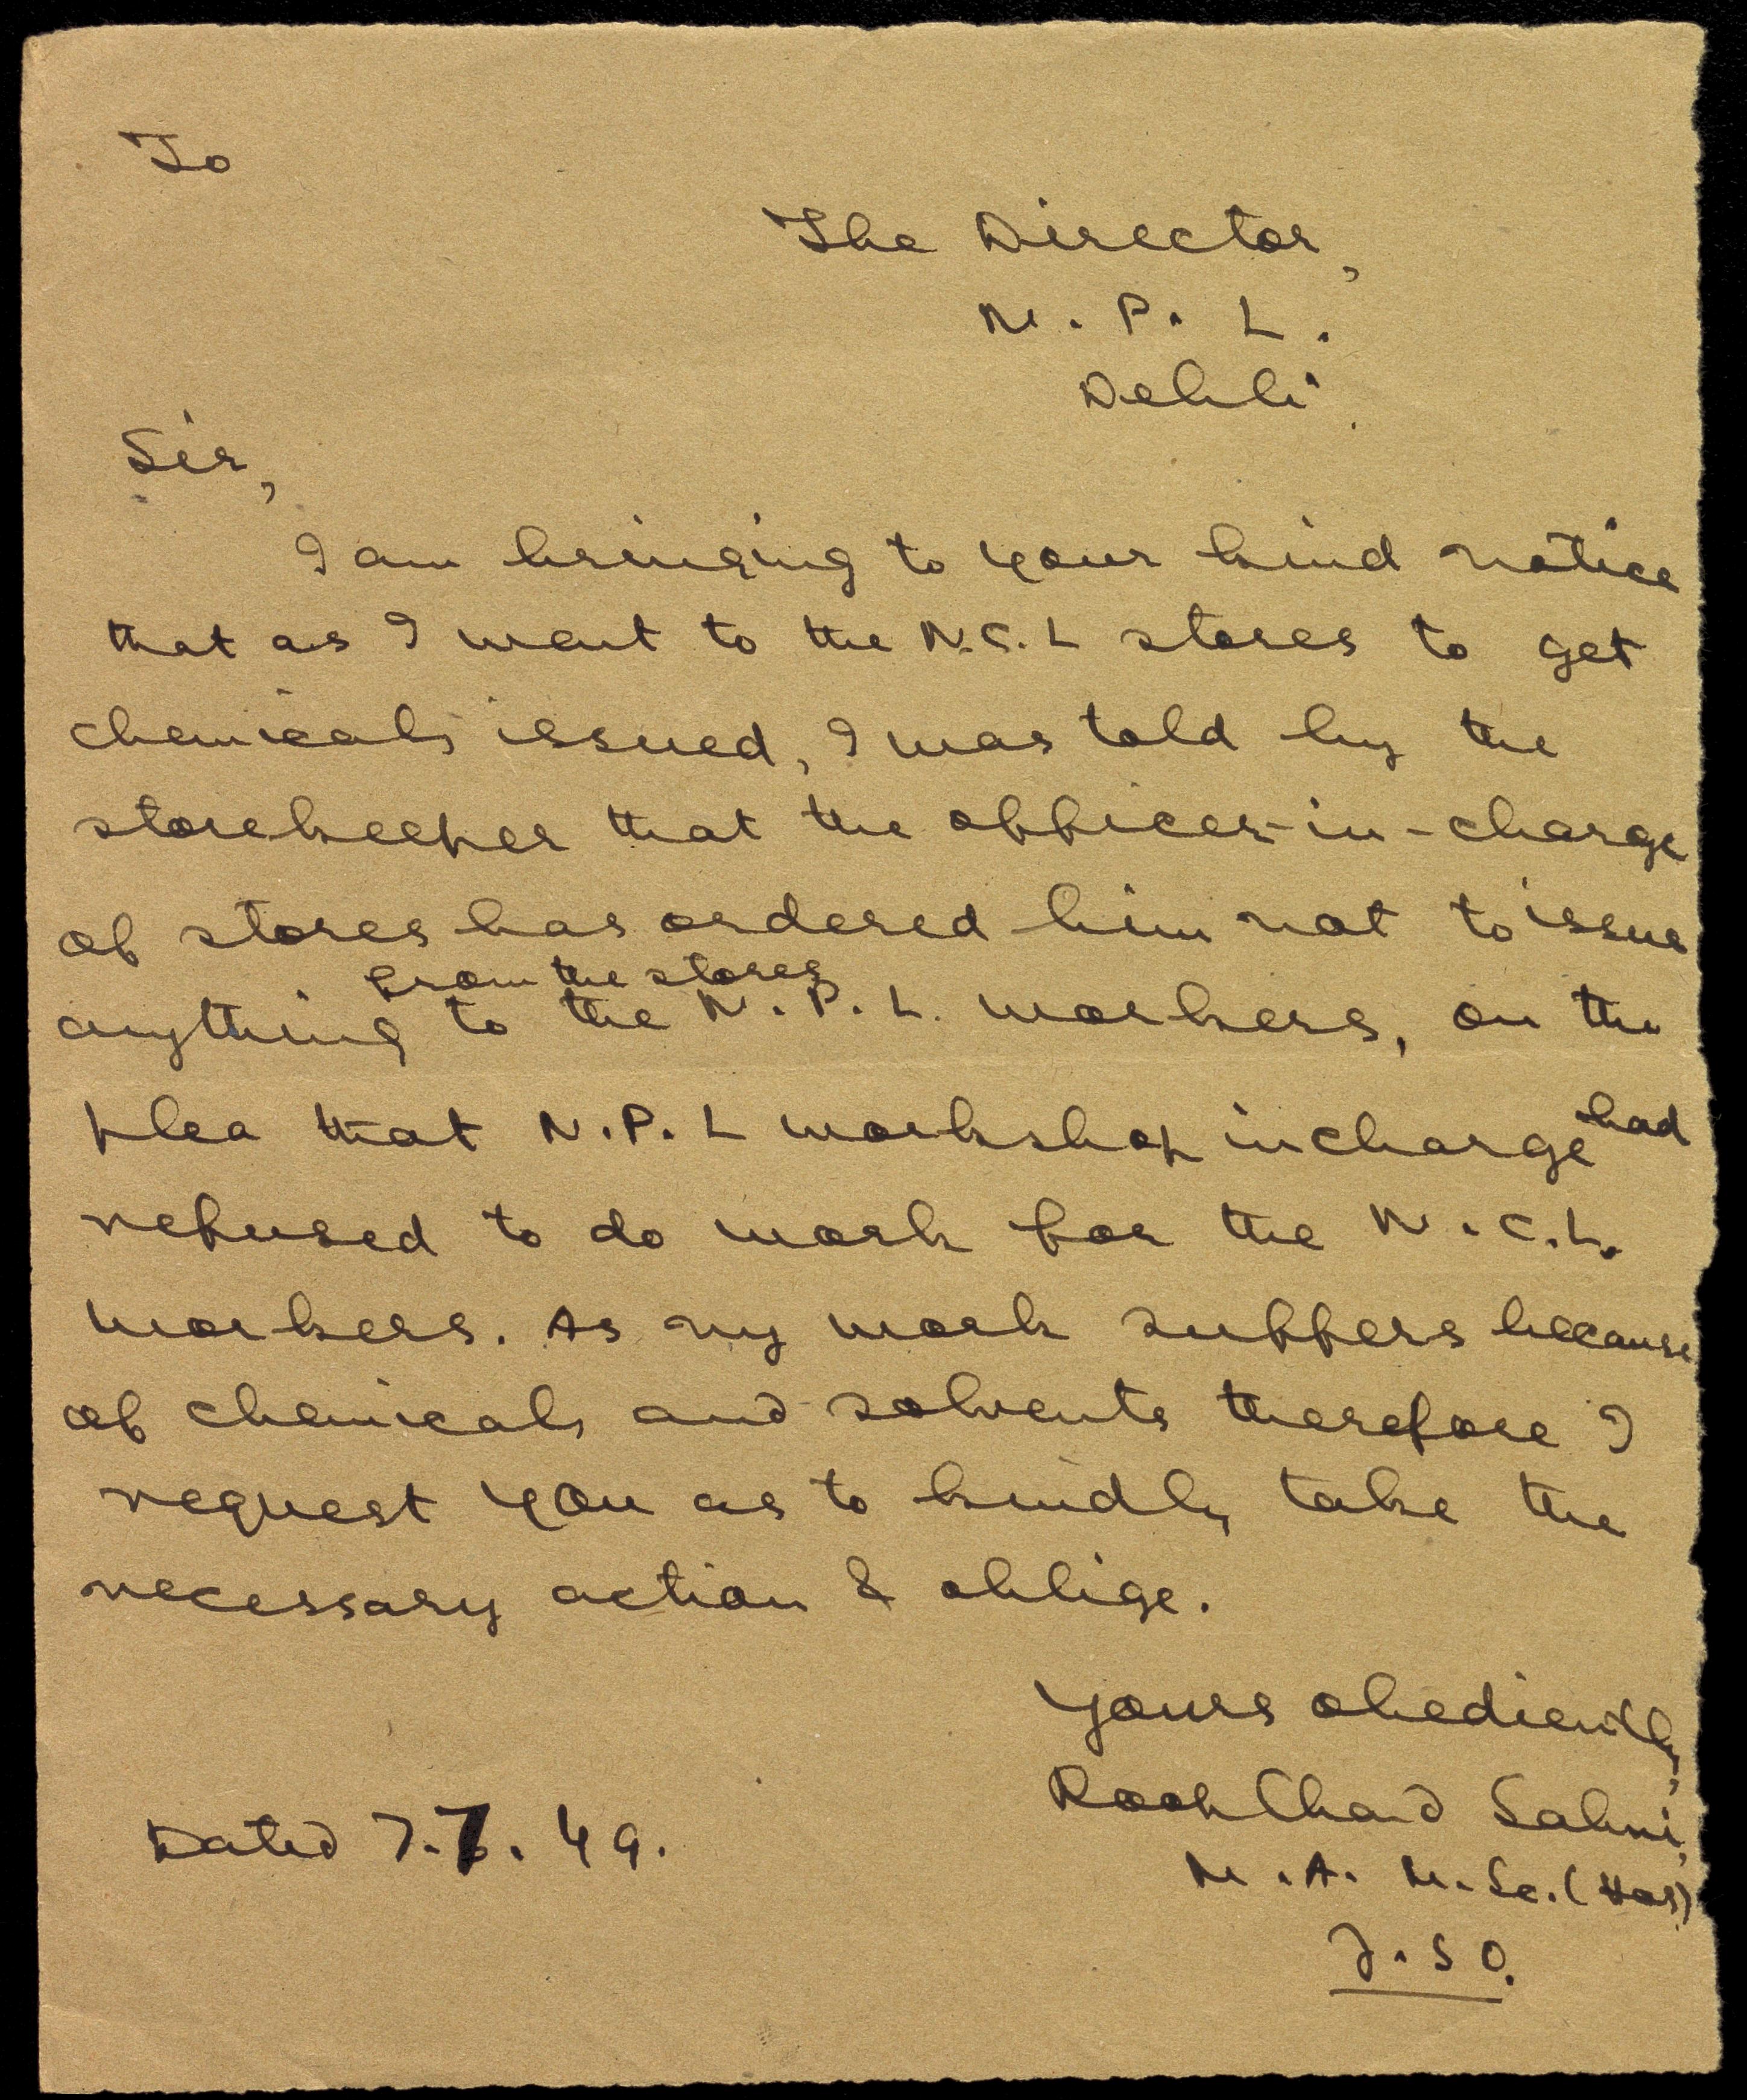 To
The Director,
N. P. L.
Delhi.
Sir,
I am bringing to your kind notice
that as I went to the N.C.L stores to get
chemicals issued, I was told by the
storekeeper that the officer-in-charge
of stores has ordered him not to issue
from the stores
anything to the N. P. L. workers, on the
plea that N.P.L workshop incharge had
refused to do work for the N.C.L.
workers. As my work suffers because
of chemicals and solvents therefore I
request you as to kindly take the
necessary action & oblige.
Yours obediently,
Roop Chand Sahni,
M.A. M.Sc. (Hos)
J.S O.
Dated 7.7.49.